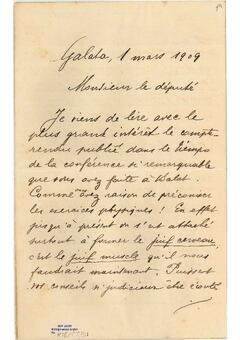 Galata, 1 mars 1909
Monsieur le député
Je viens de lire avec le
plus grand intérêt le compte-
rendu publié dans le Lempo
de la conférence si remarquable
que vous avez faite à Balat.
Comme vous avez raison de préconiser
les exercices physiques ! En effet
jusqu'à présent on s'est attaché
surtout à former le juif cerveau
c'est le juif muscle qu'il nous
faudrait maintenant. Puissent
vos conseils si judicieux être écoutés